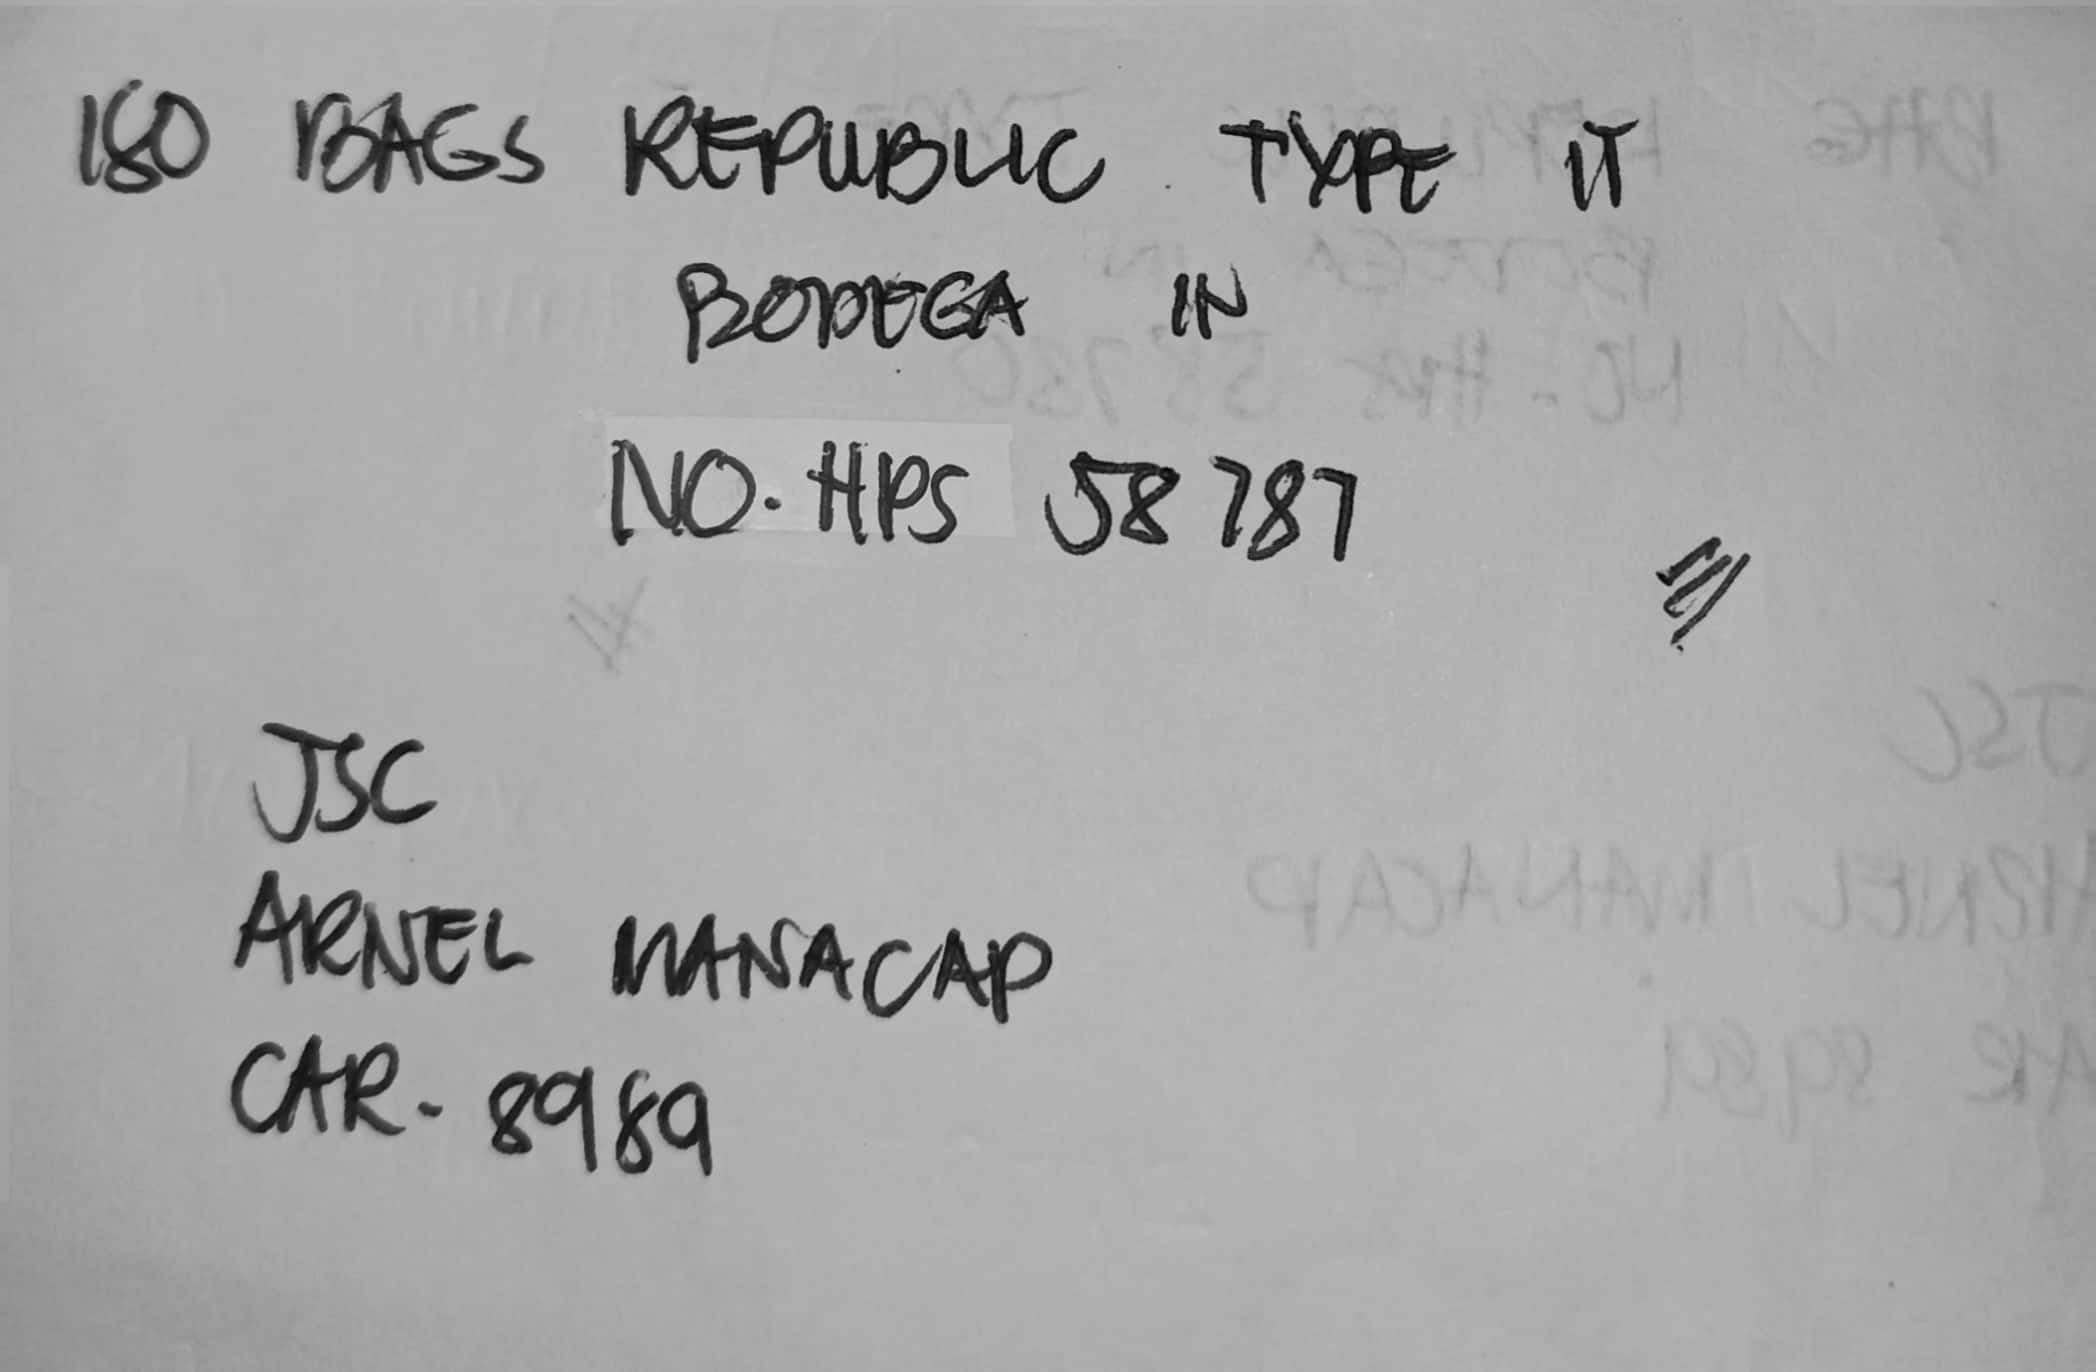 180 BAGS REPUBLIC TYPE 1T
BODEGA IN
NO. HPS 58787
JSC
ARNEL MANACAP
CAR- 8989